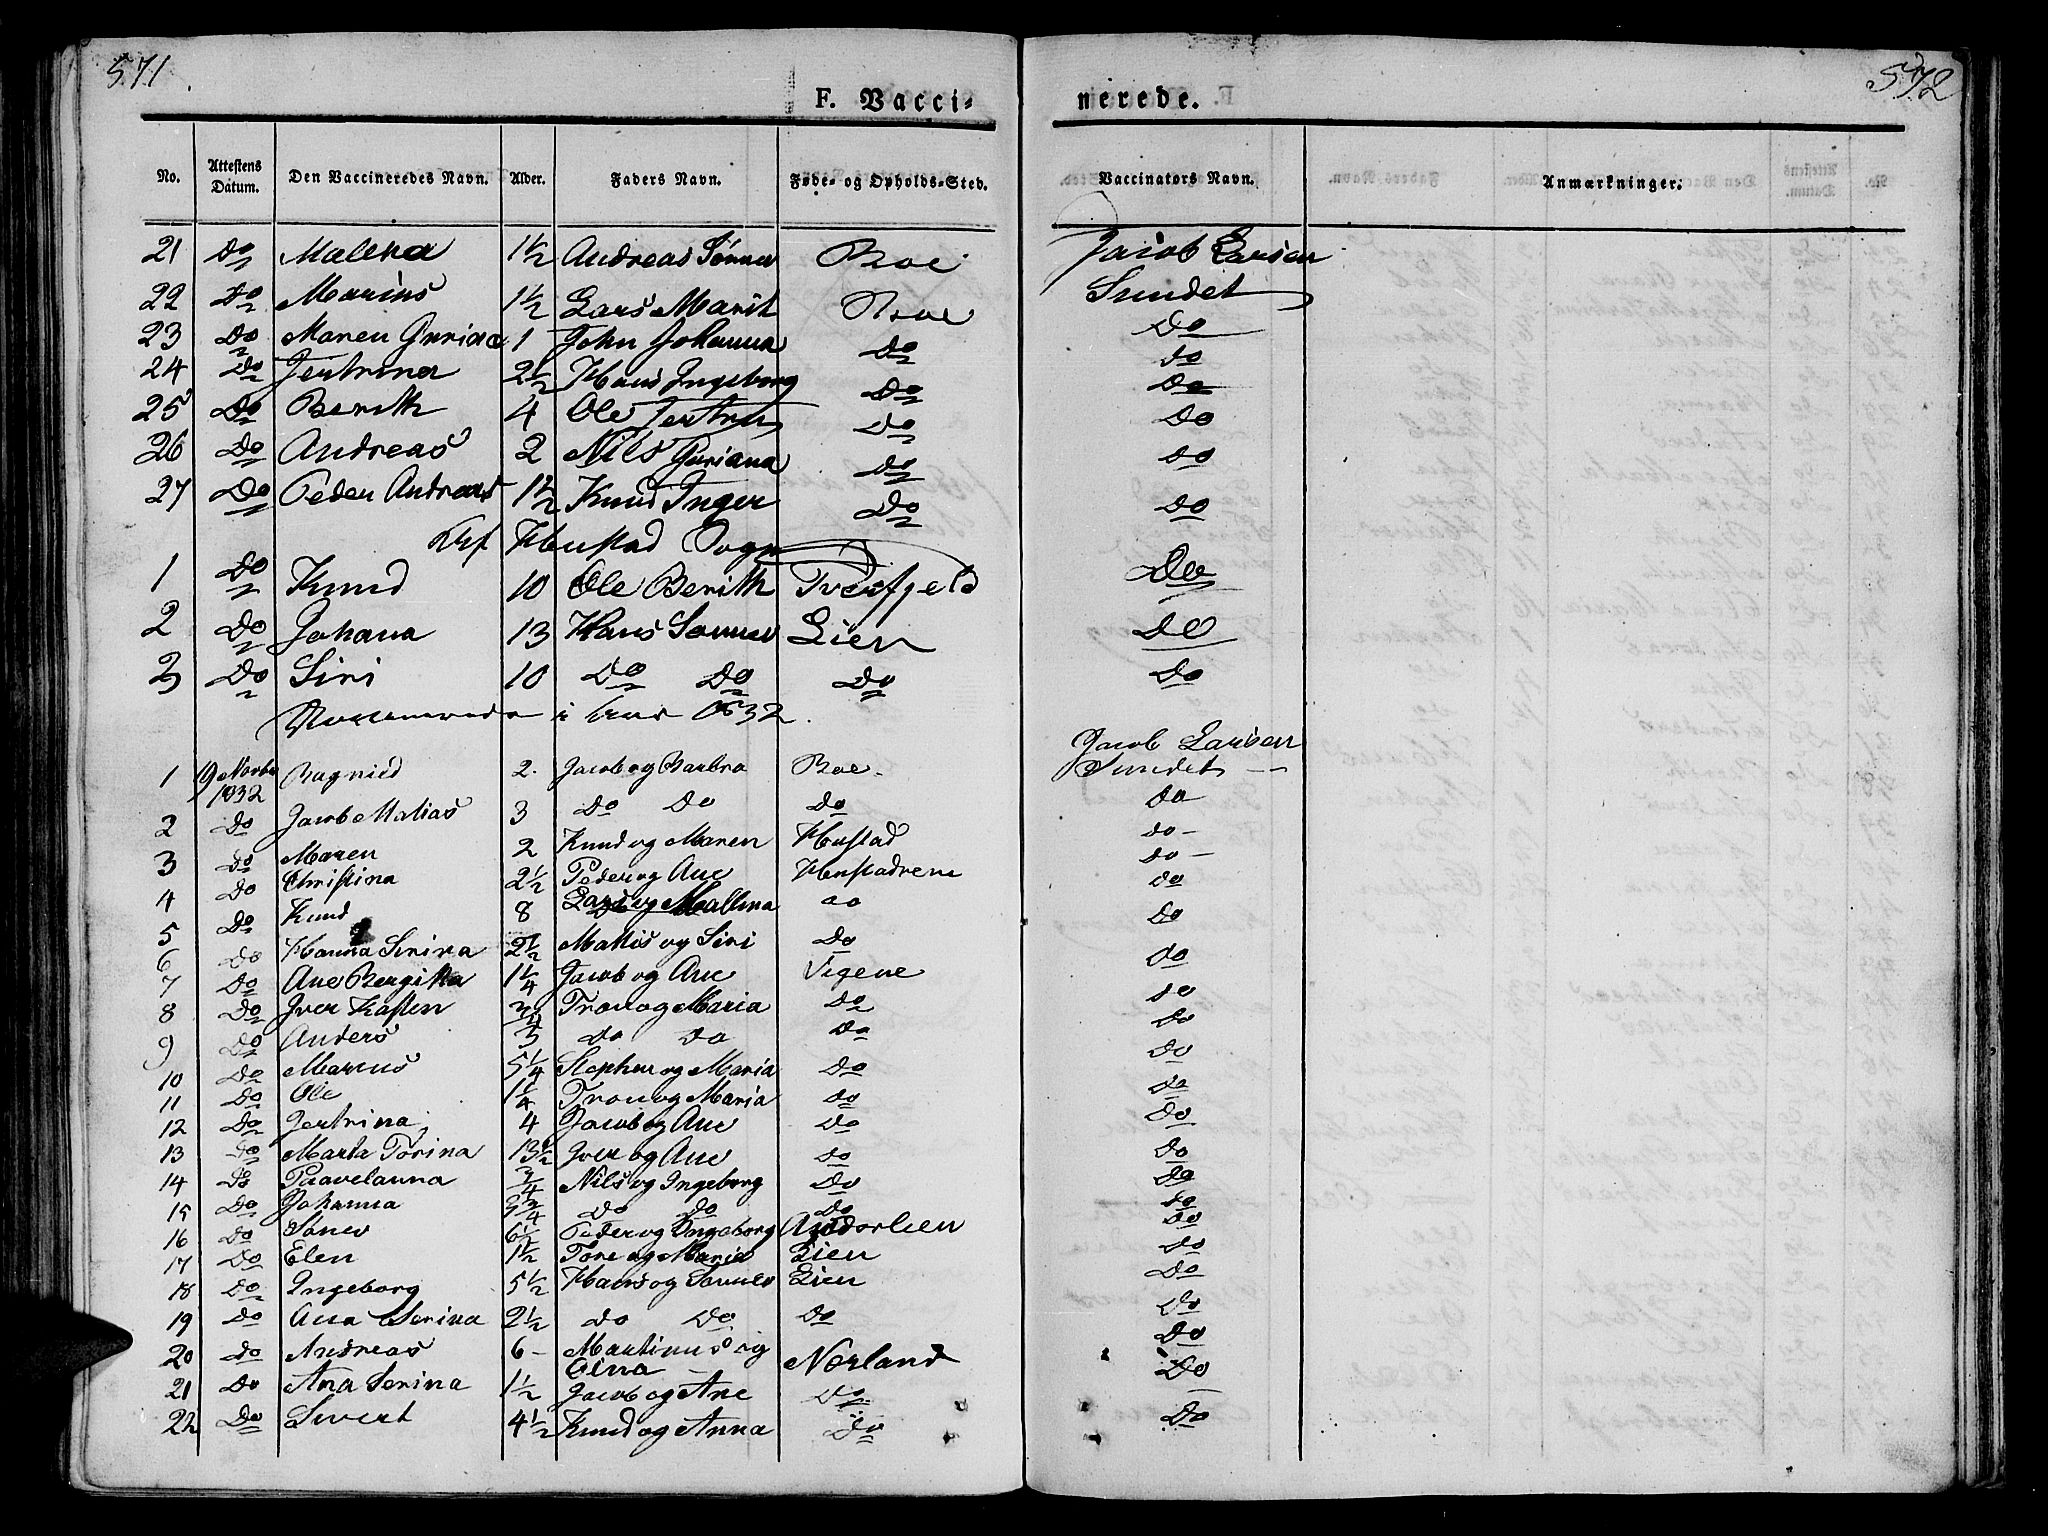 571
572
F. Vacci-
nerede.
No. Attestens Datum. Den Vaccineredes Navn. Alder. Faders Navn. Føde- og Opholds-Sted. Vaccinators Navn. Anmærkninger.
21 Do Malena 1½ Andreas Sønnev Boe Jacob Larsen
22 Do Marius 1½ Lars Marit Sundet
23 Do Maren Guriana 1 John Johanna Do Do
24 Do Jertrina 2½ Hans Ingeborg Do Do
25 Do Berith 4 Ole Jertru Do Do
26 Do Andreas 2 Nils Guriana Do Do
27 Do Peder Andreas 1½ Knud Inger Do Do
Af Hustad Sogn
1 Do Knud 10 Ole Berith Tverfjeld Do
2 Do Johana 13 Hans Sønnev Lien Do
3 Do Siri 10 Do Do Do Do
Vaccinerede i 1832
1 19 Novbr 1832 Ragnild 2. Jacob og Barbra Boe. Jacob Larsen Sundet
2 Do Jacob Matias 3 Do Do Do Do
3 Do Maren 2 Knud og Maren Hustad do
4 Do Christina 2½ Peder og Ane do
5 Do Knud 8 Lars og Mallena do Do
6 Do Hanna Serina 2½ Mattis og Siri Do Do
7 Do Ane Bergitta 1¼ Jacob og Ane Vigene Do
8 Do Iver Kasten Tron og Maria Do Do
9 Do Anders 3 Do Do Do Do
10 Do Marcus 5¼ Stephen og Maria Do Do
11 Do Ole 1¼ Tron og Maria Do Do
12 Do Jertrina 4 Jacob og Ane Do Do
13 Do Marta Torina 13½ Iver og Ane Do Do
14 Do Paavelanna ¾ Nils og Ingeborg Do Do
15 Do Johanna Do Do Do Do
16 Do Sønev 6½ Peder og Ingeborg Do
17 Do Elen 1½ Tore og Maria Lien Do
18 Do Ingeborg 5½ Hans og Sønnev Lien Do
19 Do Ana Serina 2½ do Do Do Do
20 Do Andreas 6 Martinus og Norland Do
21 Do Ana Serina 1½ Jacob og Ane Do Do
22 Do Sivert 4½ Knud og Anna Do Do